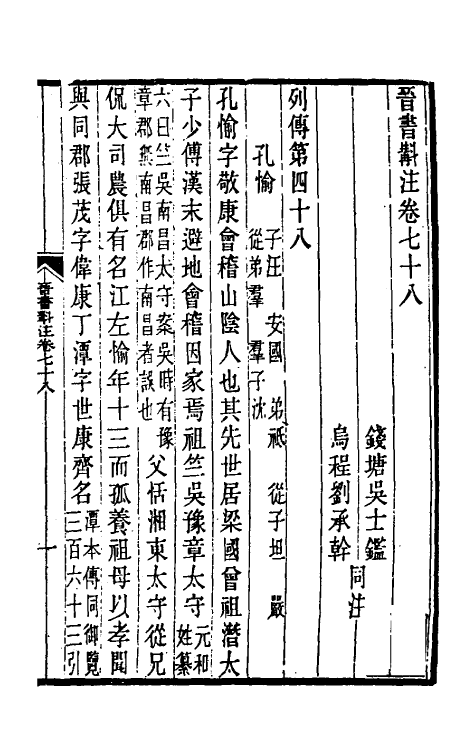 晉書斠注卷七十八
錢塘吳士鑑
烏程劉承幹
同注
列傳第四十八
孔愉
子汪 安國 弟祗 從子坦 嚴
從弟羣 羣子沈
孔愉字敬康會稽山陰人也其先世居梁國曾祖潛太
子少傅漢末避地會稽因家焉祖竺吳豫章太守
元和
姓纂
六曰竺吳南昌太守案吳時有豫
章郡無南昌郡作南昌者誤也
父恬湘東太守從兄
侃大司農俱有名江左愉年十三而孤養祖母以孝聞
與同郡張茂字偉康丁潭字世康齊名
潭本傳同御覽
三百六十三引
晉書斠注卷七十八
一